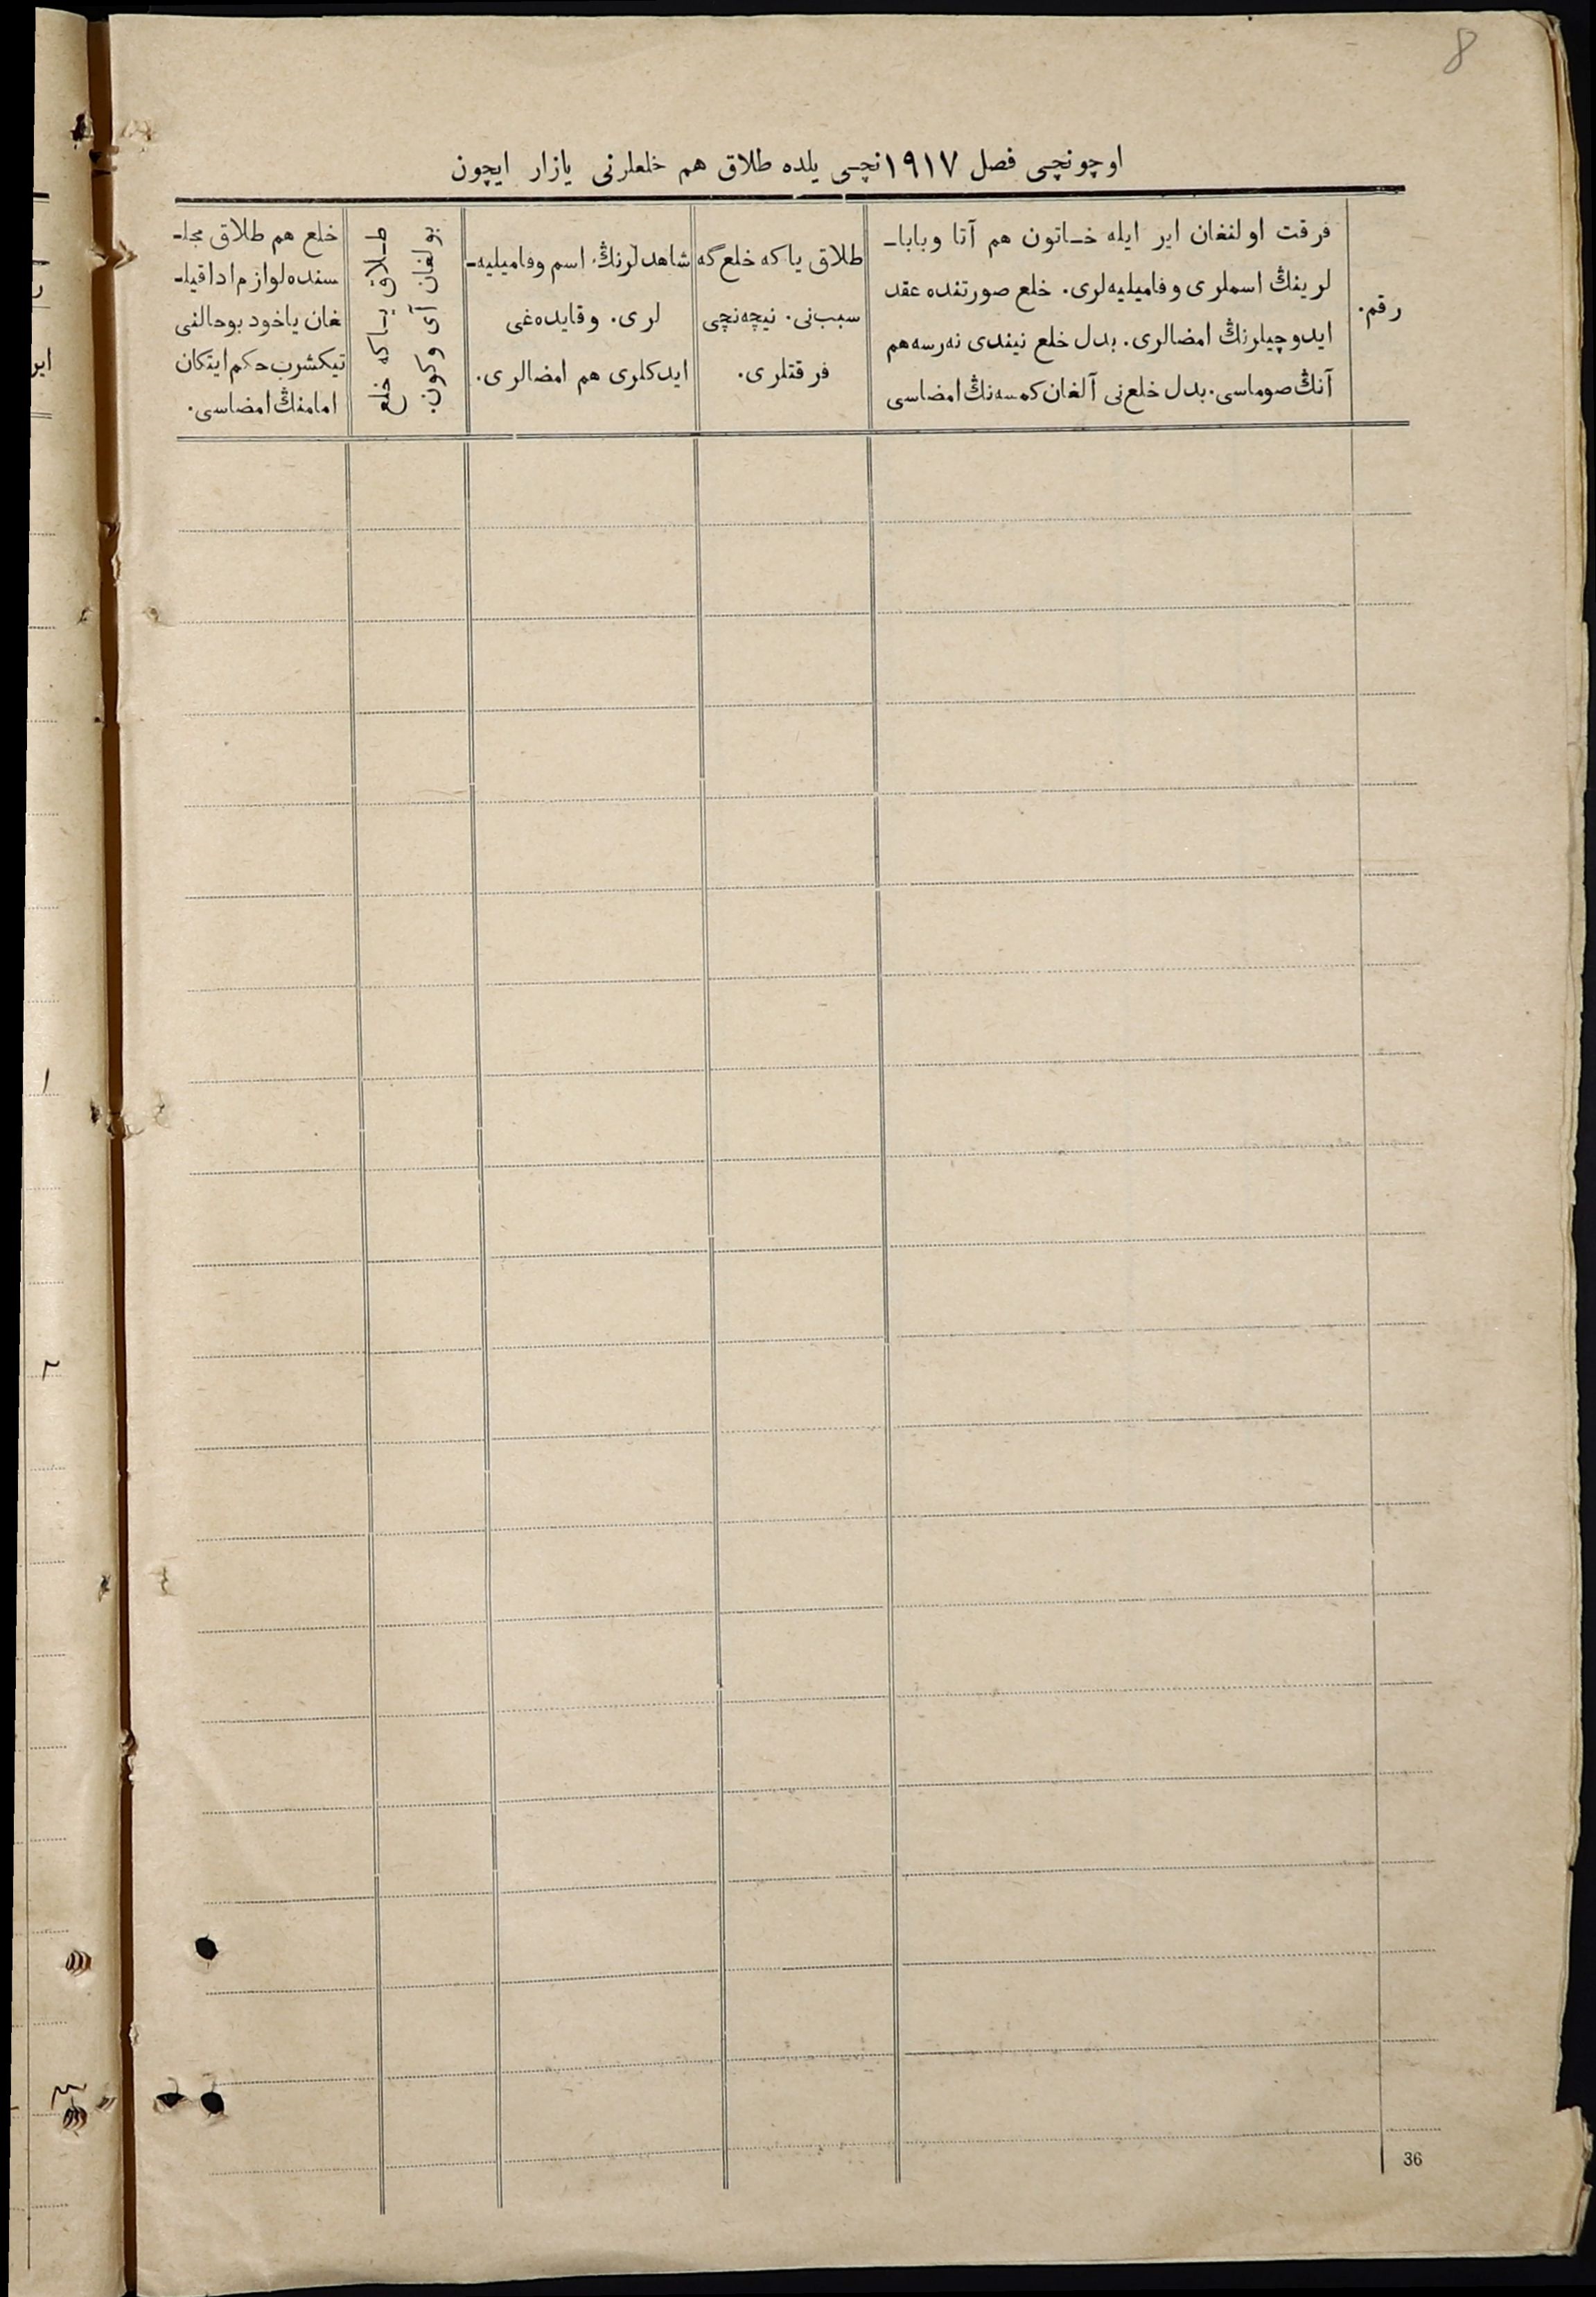 8
اوچونچی فصل ۱۹۱۷نچی یلده طلاق هم خلعلرنی یازار ایچون
رقم.
فرقت اولنغان ایر ایله خـاتون هم آتا وبابا-
لرینڭ اسملری وفامیلیه‌لری. خلع صورتنده عقد
ایدوچیلرنڭ امضالری. بدل خلع نیندی نەرسه هم
آنڭ صوماسی. بدل خلع‌نی آلغان کمسه‌نڭ امضاسی
طلاق یاکه خلع گه
سبب‌نی. نیچه‌نچی
فرقتلری.
شاهدلرنڭ اسم وفامیلیه-
لری. وقایده‌غی
ایدکلری هم امضالری.
طـلاق یـاکه خلع
بولغان آی وکون.
خلع هم طلاق مجلـ
سنده لوازم ادا قیلـ
غان یاخود بوحالنی
تیکشرب حکم ایتکان
امامنڭ امضاسی.
ایر
۱
۲
۳
36